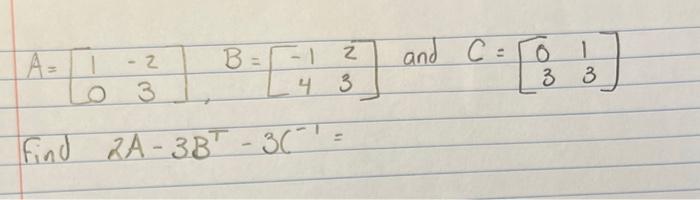 A = [1 -2
0 3], B = [-1 2
4 3] and C = [0 1
3 3]
Find 2A - 3Bᵀ - 3C⁻¹ =